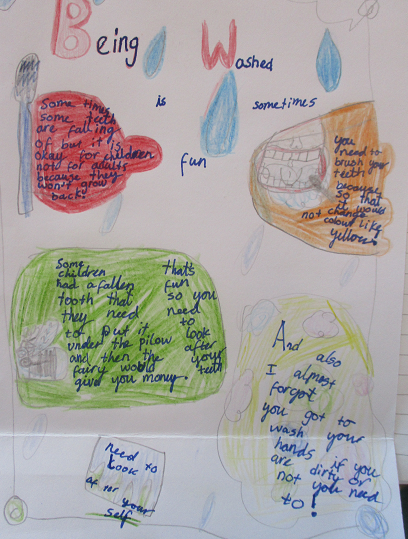 Being Washed
is sometimes
fun
Some times
some teeth
are falling
of but it is
okay for children
not for adults
because they
won't grow
back!
you
need to
brush your
teeth
because
so that
it would
not change
colour like
yellow!
Some
children
had a fallen
tooth that
they need
to put it
under the pilow
and then the
fairy would
give you money.
that's
fun
so you
need
to
look
after
your
teeth
And
also
I almost
forgot
you got to
wash your
hands if you
are dirty or
not you need
to!
need to
look
after your
self